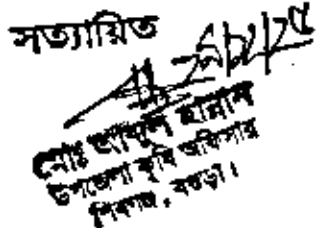 সত্যায়িত
মোঃ আব্দুল হান্নান
উপজেলা কৃষি অফিসার
শিবগঞ্জ, বগুড়া।